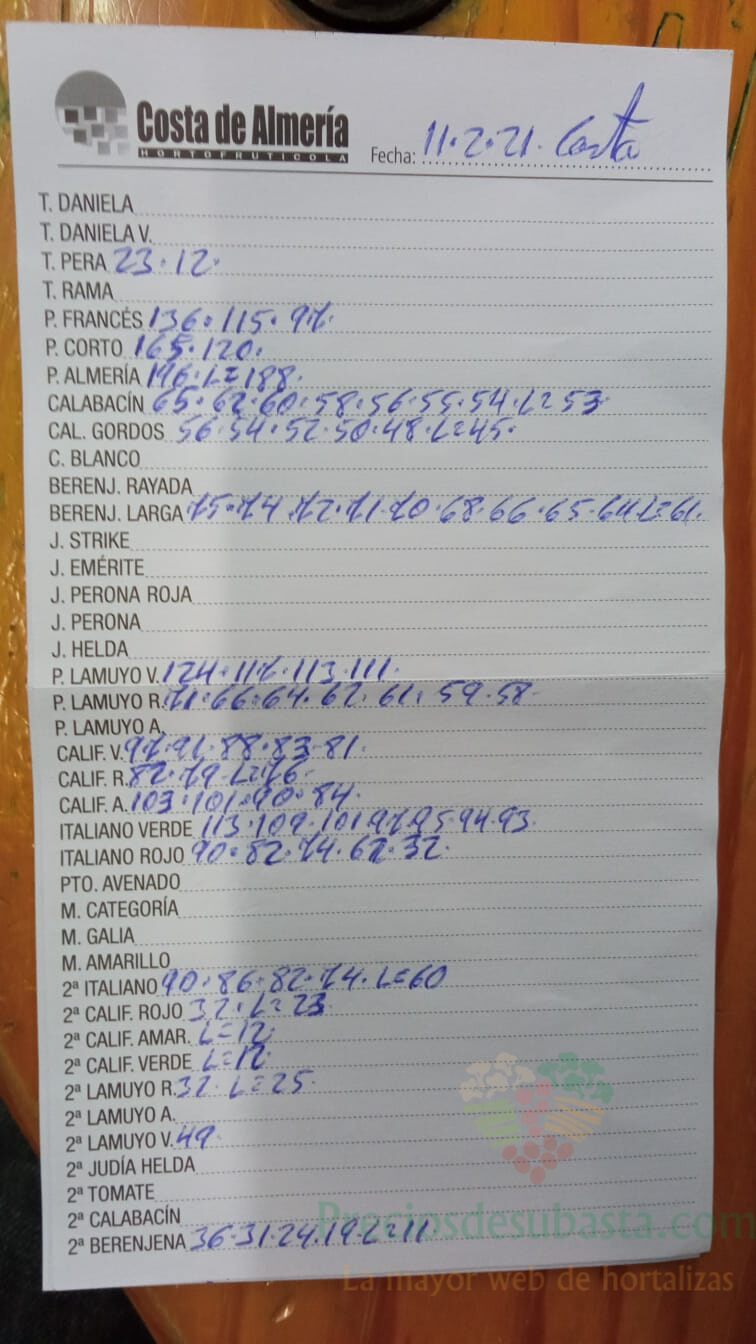 Costa de Almería
HORTOFRUTICOLA
Fecha: 11·2·21· Costa
T. DANIELA
T. DANIELA V.
T. PERA 23·12·
T. RAMA
P. FRANCÉS 136·115·97·
P. CORTO 165·120·
P. ALMERÍA 196·L=188·
CALABACÍN 65·62·60·58·56·55·54·L=53
CAL. GORDOS 56·54·52·50·48·L=45·
C. BLANCO
BERENJ. RAYADA
BERENJ. LARGA 75·74·72·71·70·68·66·65·64·L=61·
J. STRIKE
J. EMÉRITE
J. PERONA ROJA
J. PERONA
J. HELDA
P. LAMUYO V. 124·117·113·111·
P. LAMUYO R. 71·66·64·62·61·59·58·
P. LAMUYO A.
CALIF. V. 97·91·88·83·81·
CALIF. R. 82·79·L=76·
CALIF. A. 103·101·90·84·
ITALIANO VERDE 113·109·101·97·95·94·93·
ITALIANO ROJO 90·82·74·62·32·
PTO. AVENADO
M. CATEGORÍA
M. GALIA
M. AMARILLO
2ª ITALIANO 90·86·82·74·L=60
2ª CALIF. ROJO 32·L=23
2ª CALIF. AMAR. L=12·
2ª CALIF. VERDE L=12
2ª LAMUYO R. 32·L=25·
2ª LAMUYO A.
2ª LAMUYO V. 49·
2ª JUDÍA HELDA
2ª TOMATE
2ª CALABACÍN
2ª BERENJENA 36·31·24·19·L=11
Preciosdesubasta.com
La mayor web de hortalizas